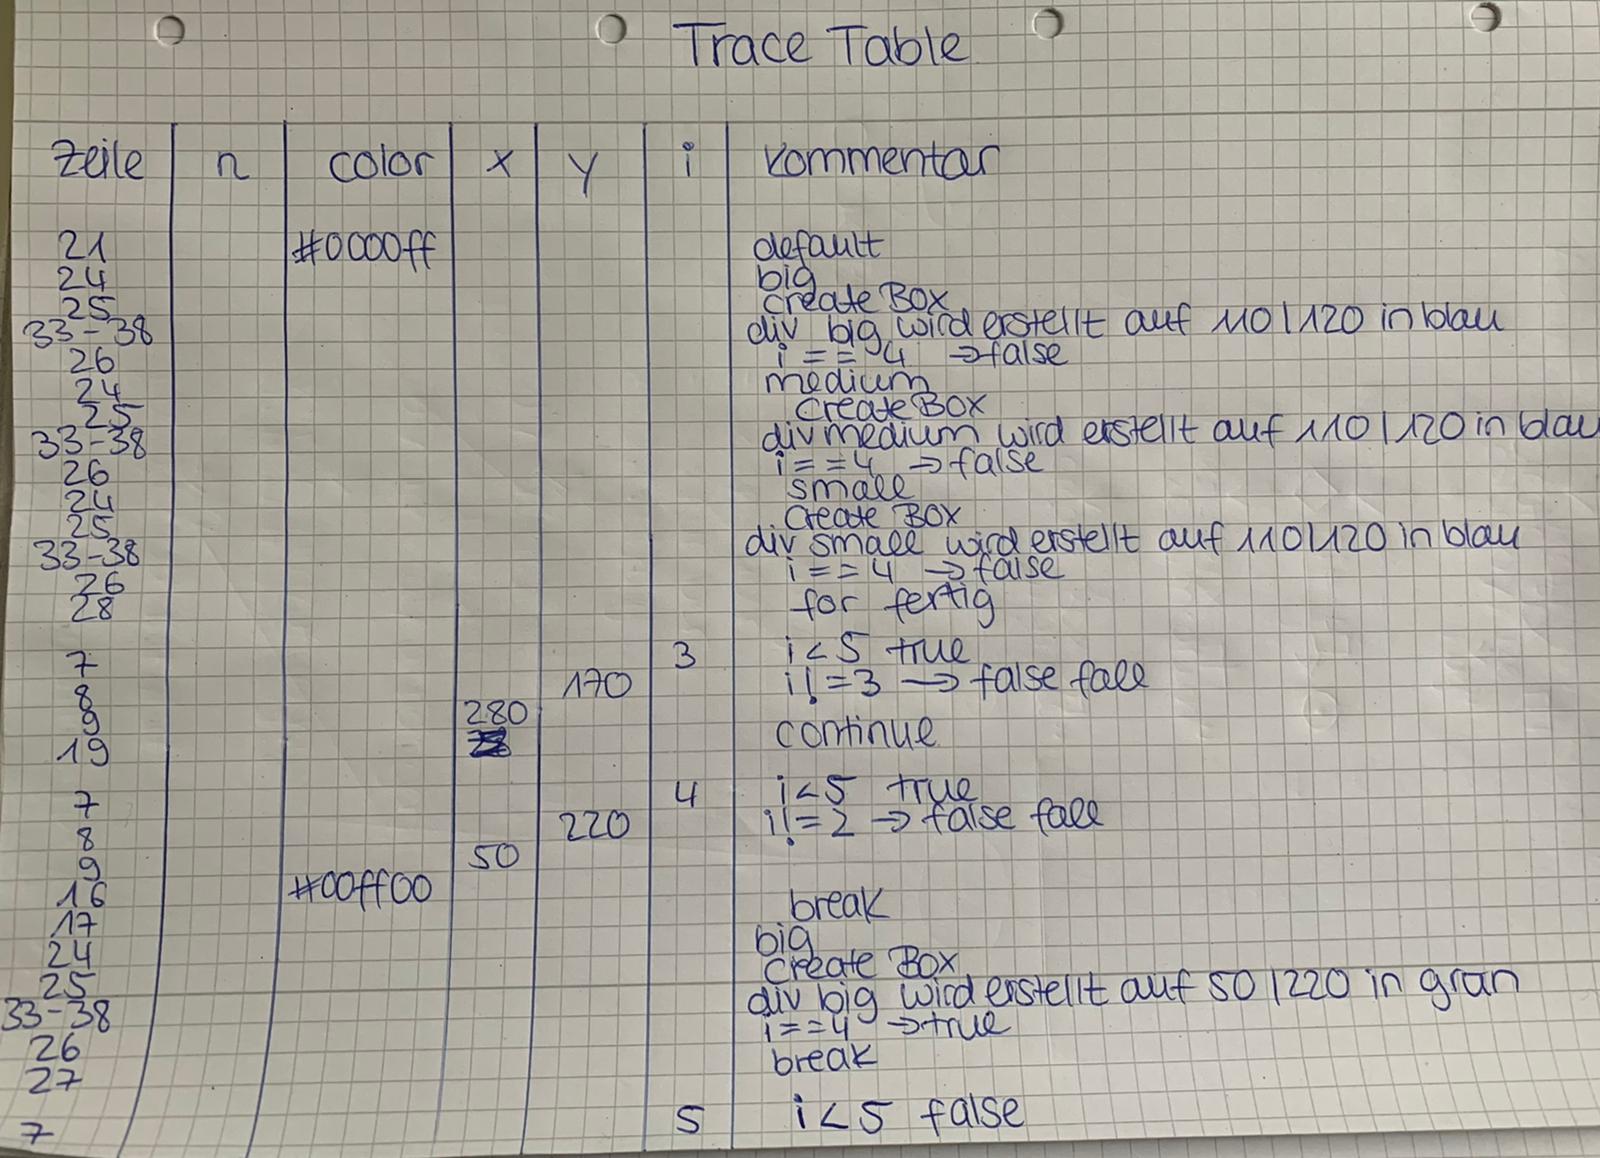 Trace Table
Zeile n color x y i Kommentar
21 #0000ff default
24 big
25 create Box
33-38 div big wird erstellt auf 110|120 in blau
26 i == 4 → false
24 medium
25 create Box
33-38 div medium wird erstellt auf 110|120 in blau
26 i == 4 → false
24 small
25 create Box
33-38 div small wird erstellt auf 110|120 in blau
26 i == 4 → false
28 for fertig
7 3 i < 5 true
8 170 i != 3 → false fall
9 280
19 continue
7 4 i < 5 true
8 220 i != 2 → false fall
9 50
16 #00ff00
17 break
24 big
25 create Box
33-38 div big wird erstellt auf 50|220 in grün
26 i == 4 → true
27 break
7 5 i < 5 false